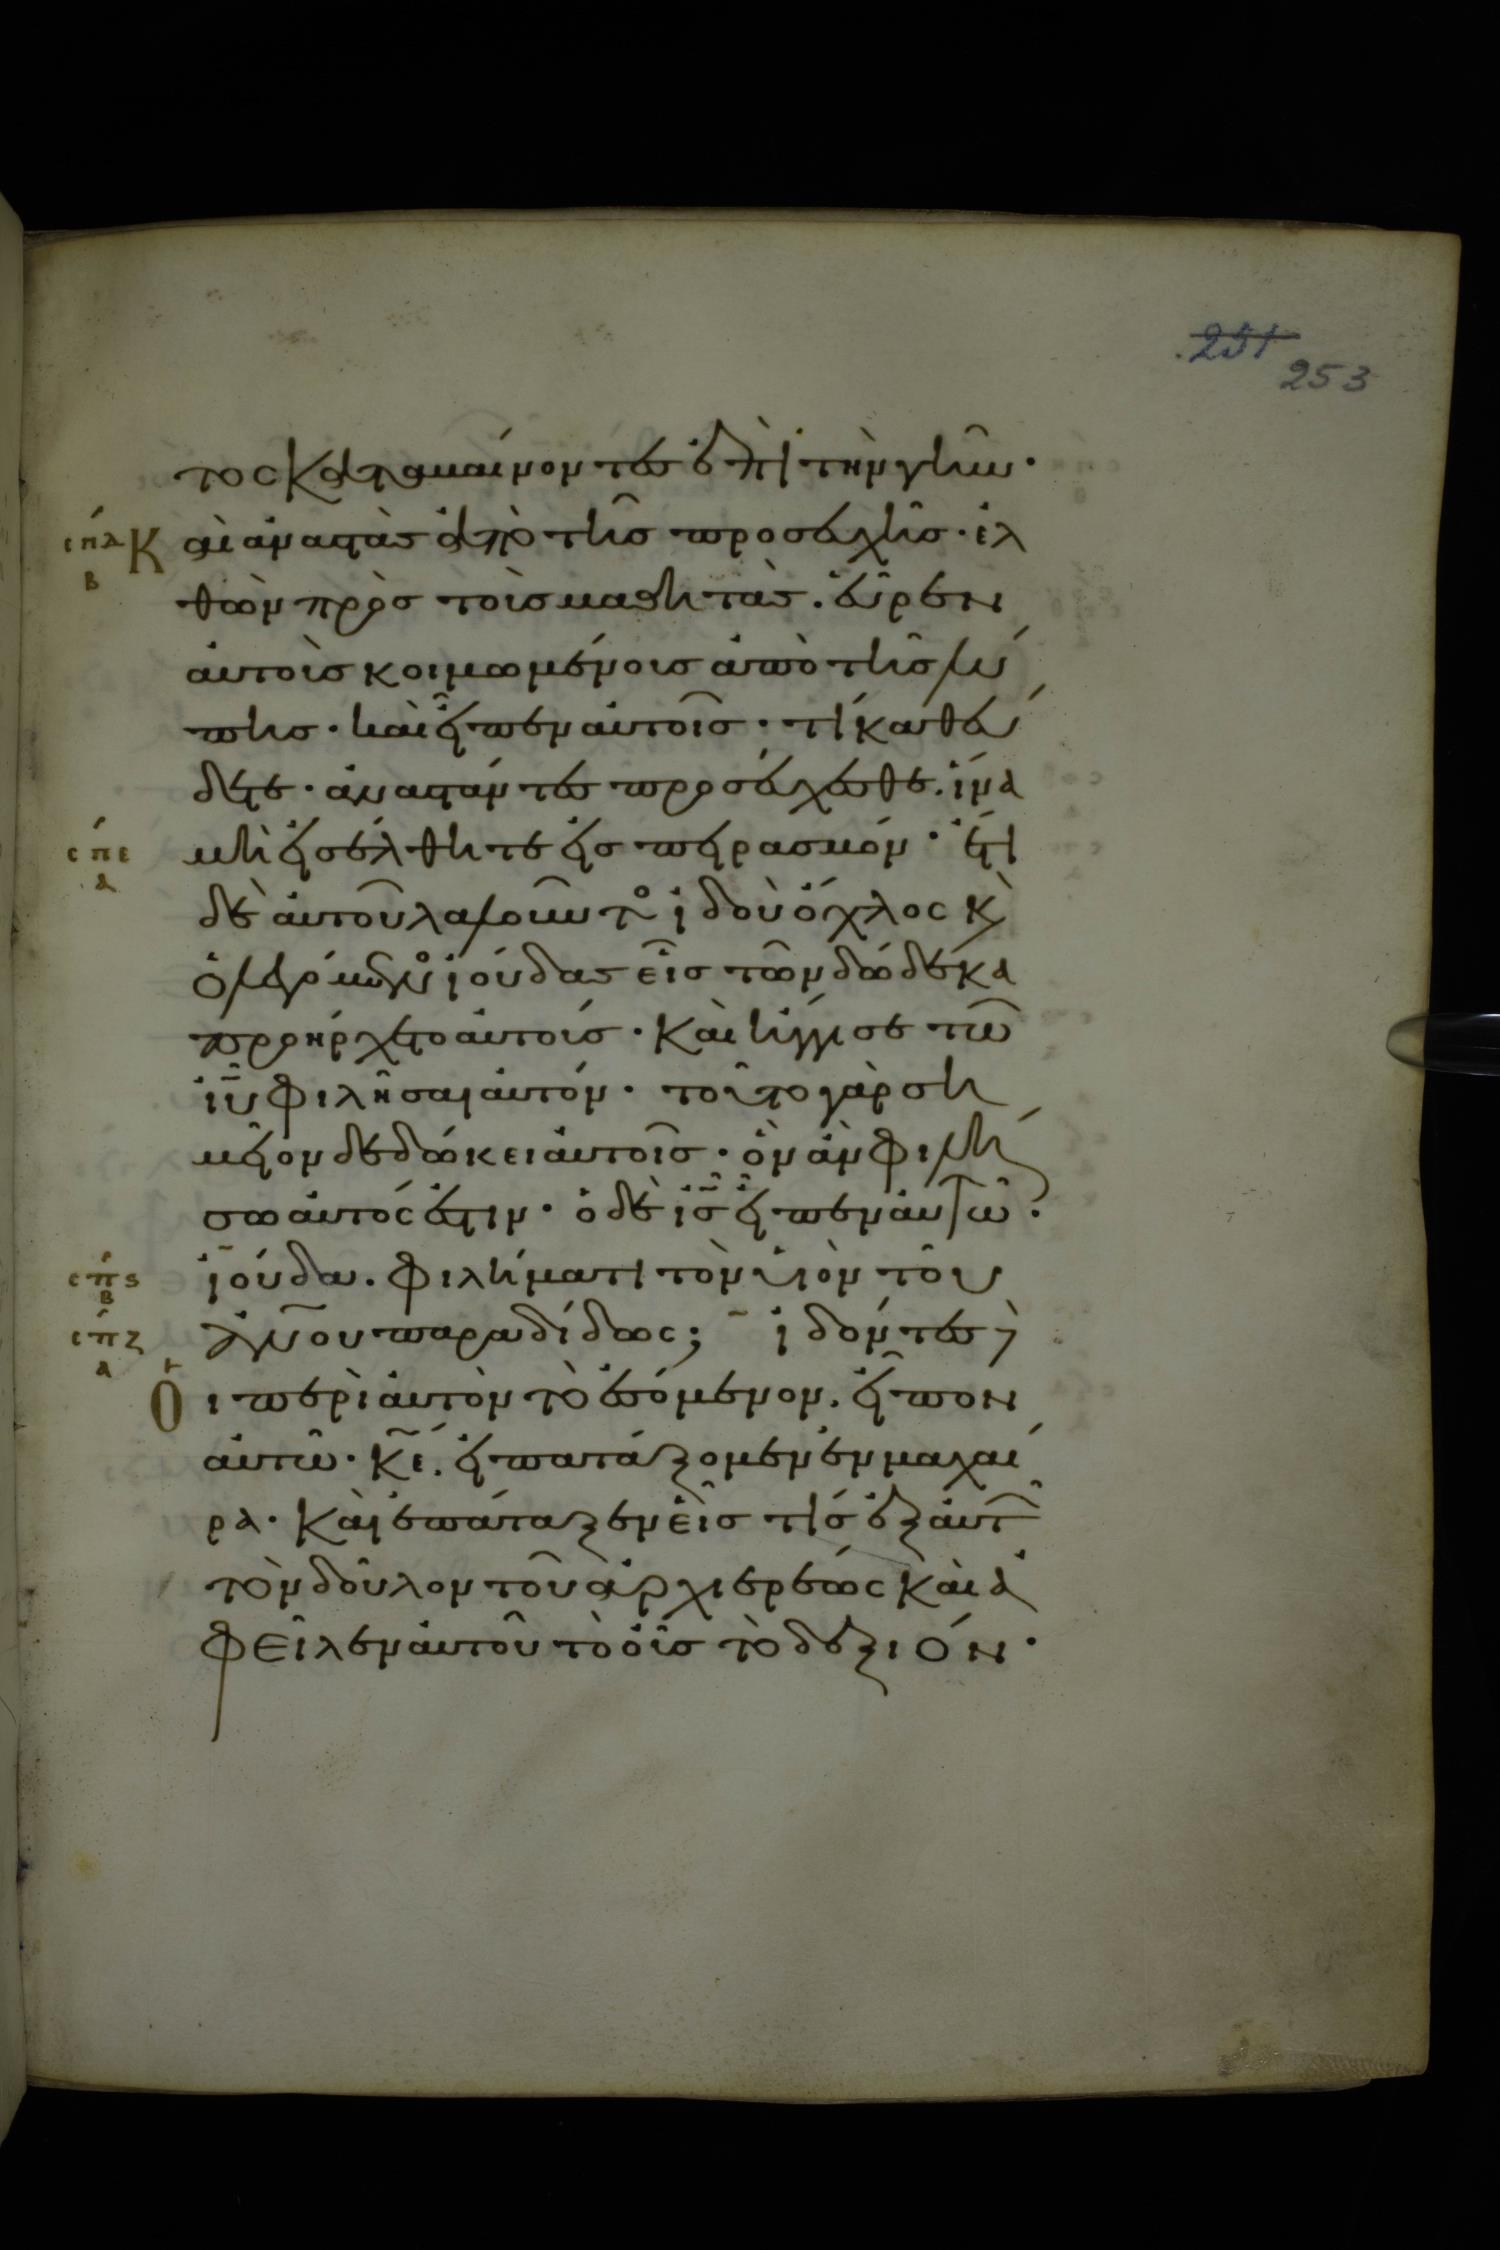 251
253
τος καταβαίνοντες ἐπὶ τὴν γῆν·
σπδ Καὶ ἀναστὰς ἀπὸ τῆς προσευχῆς· ἐλ
β
θὼν πρὸς τοὺς μαθητὰς. εὗρεν
αὐτοὺς κοιμωμένους ἀπὸ τῆς λύ
πης· καὶ εἶπεν αὐτοῖς· τί καθεύ
δετε· ἀναστάντες προσεύχεσθε. ἵνα
σπε μὴ εἰσέλθητε εἰς πειρασμόν· ἔτι
α
δὲ αὐτοῦ λαλοῦντο ἰδοὺ ὄχλος κ
ὁ λεγόμενο ἰούδας εἷς τῶν δώδεκα
προήρχετο αὐτούς· καὶ ἤγγισε τῶ
ιυ φιλῆσαι αὐτόν· τοῦτο γὰρ ση
μεῖον δεδώκει αὐτοῖς· ὃν ἂν φιλή
σω αὐτός ἐστιν· ὁ δὲ ις εἶπεν αὐτῶ·
σπς ἰούδα. φιλήματι τὸν υἱὸν τοῦ
β
σπζ ανου παραδίδως; ἰδόντες δὲ
α
Οἱ περὶ αὐτὸν τὸ ἐσόμενον. εἶπον
αὐτῶ· κε. εἰ πατάξομεν ἐν μαχαί
ρα· καὶ ἐπάταξεν εἷς τίς ἐξ αὐτ
τὸν δοῦλον τοῦ ἀρχιερέως καὶ ἀ
φεῖλεν αὐτοῦ τὸ οὖς τὸ δεξιόν·